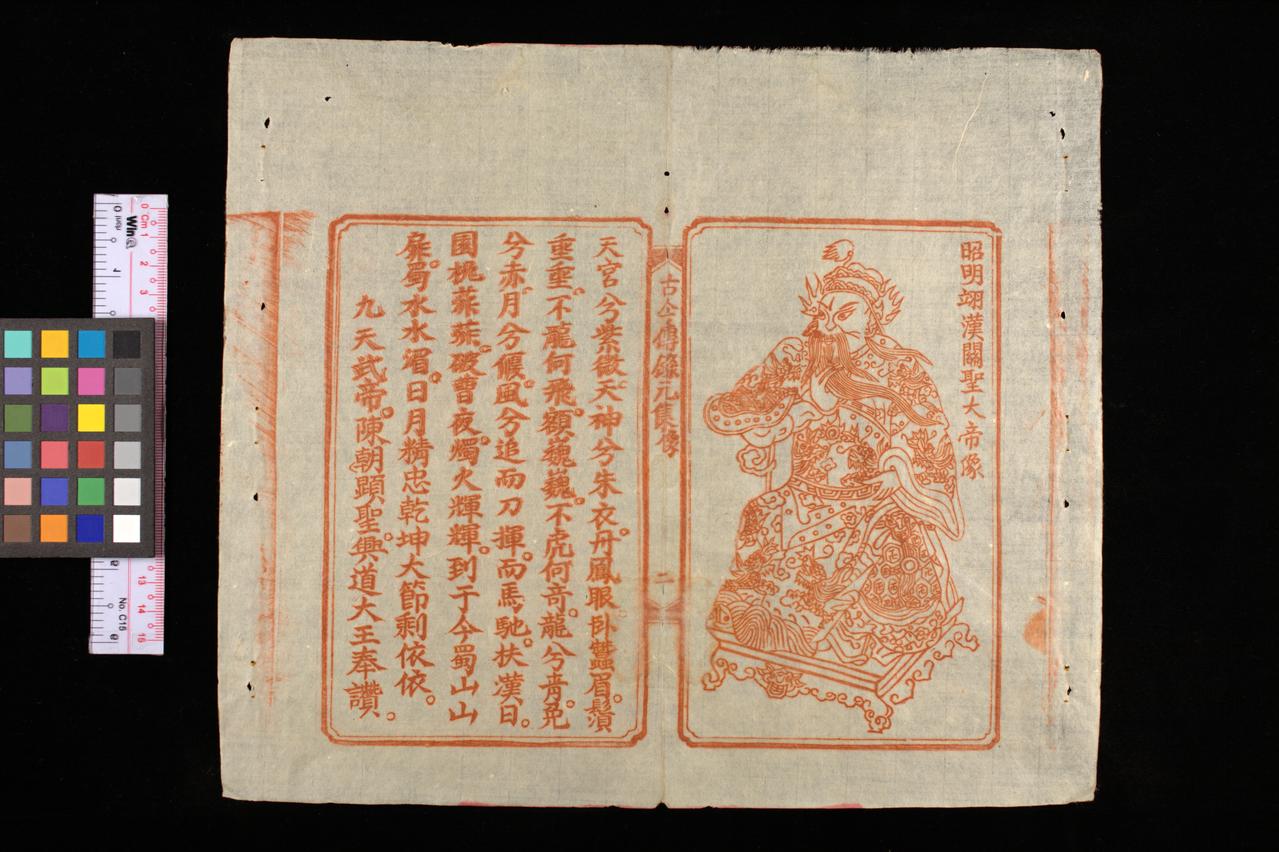 昭明翊漢關聖大帝像
古今傳籙元集像
二
天宮兮紫微。天神兮朱衣。丹鳳眼卧蠶眉。鬚
垂垂。不龍何飛。額巍巍。不虎何奇。龍兮青。兔
兮赤。月兮偃。風兮追。而刀揮。而馬馳。扶漢日。
園桃菲菲。破曹夜。燭火輝輝。到于今蜀山山
扉。蜀水水湄。日月精忠乾坤大節剩依依。
九天武帝。陳朝顕聖。興道大王奉讚。
0 Cm 1 2 3
13 14 15
No. C15